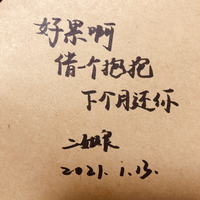 好果啊
借一个抱抱
下个月还你
2021.1.13.